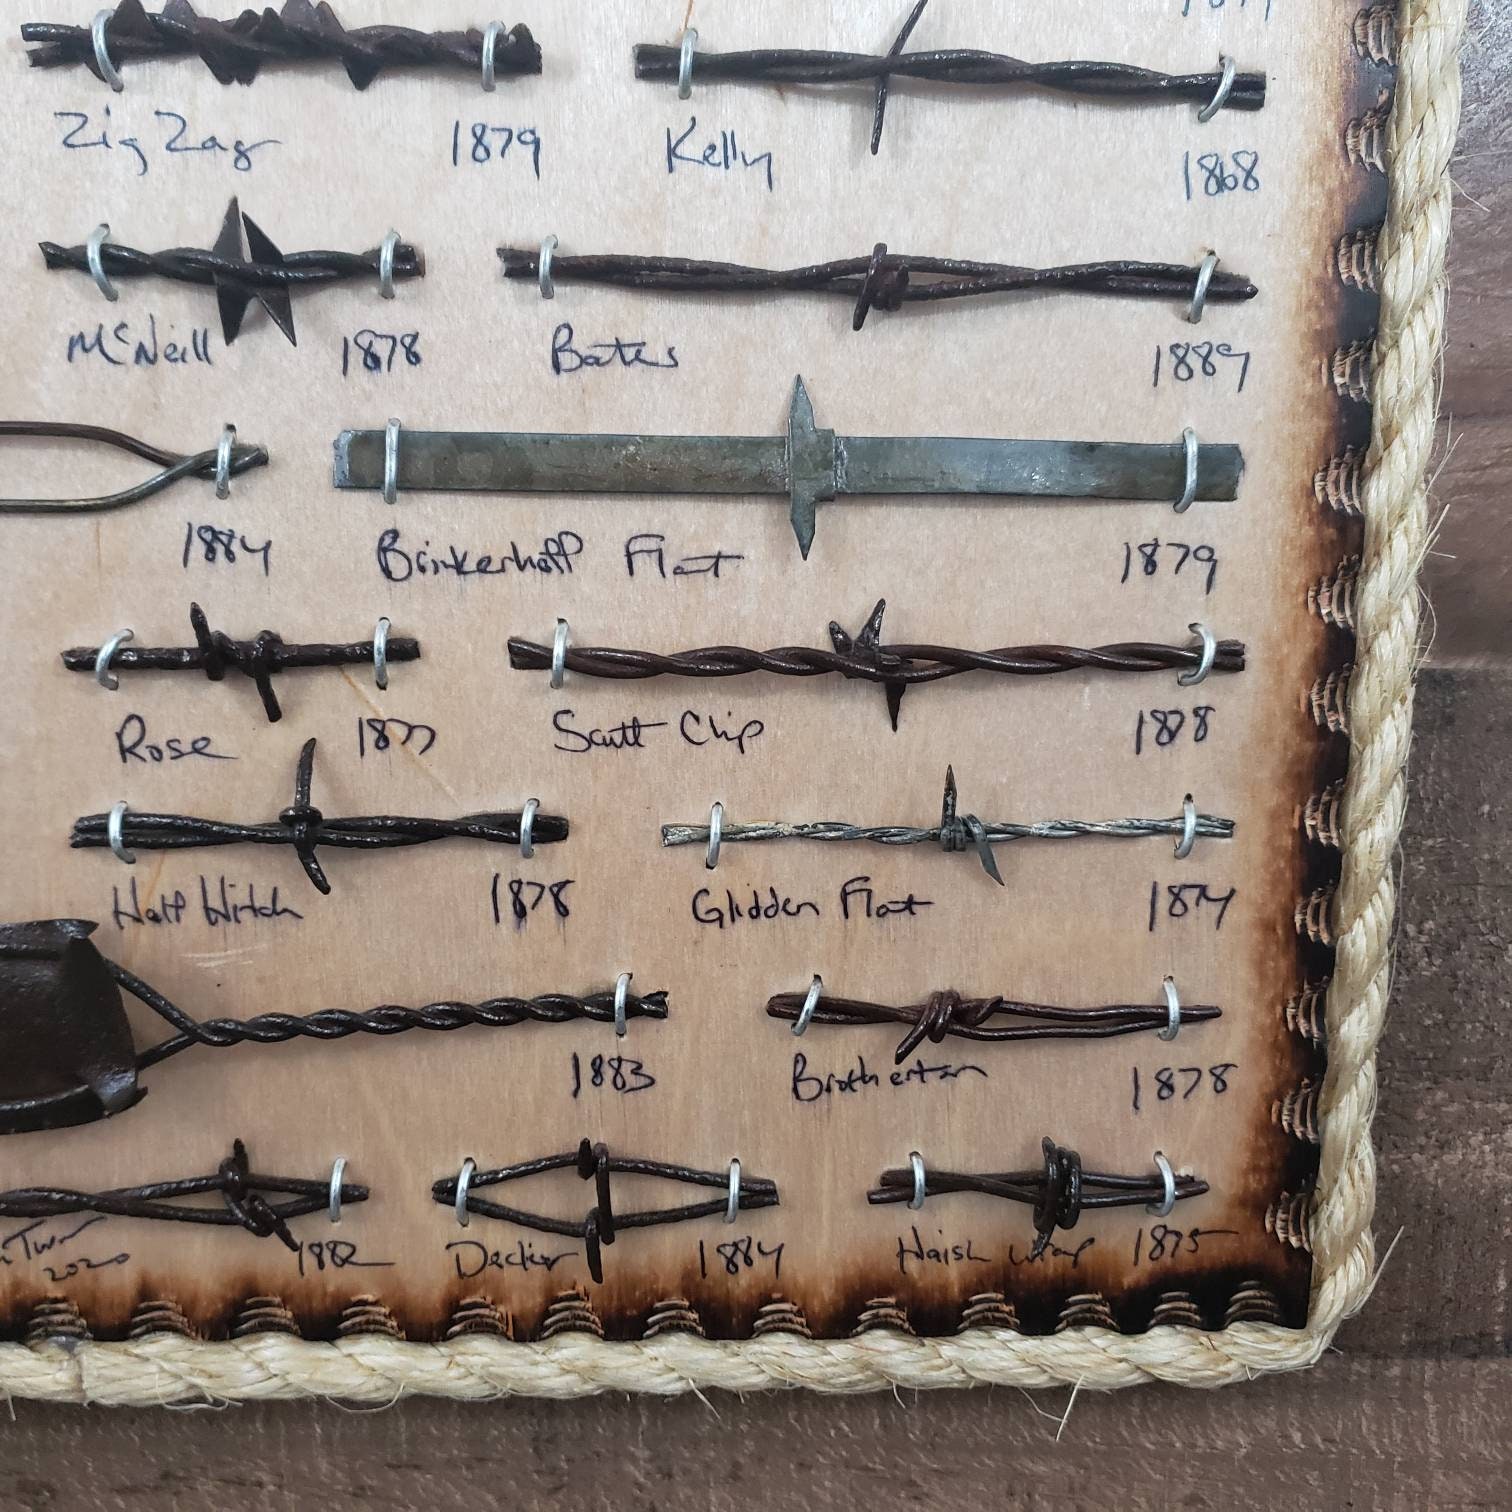 Zig Zag 1879 Kelly 1868
McNeill 1878 Bates 1889
1884 Brinkerhoff Flat 1879
Rose 1877 Scutt Clip 1878
Half Hitch 1878 Glidden Flat 1874
1883 Brotherton 1878
1882 Decker 1884 Haish Wrap 1875
2020